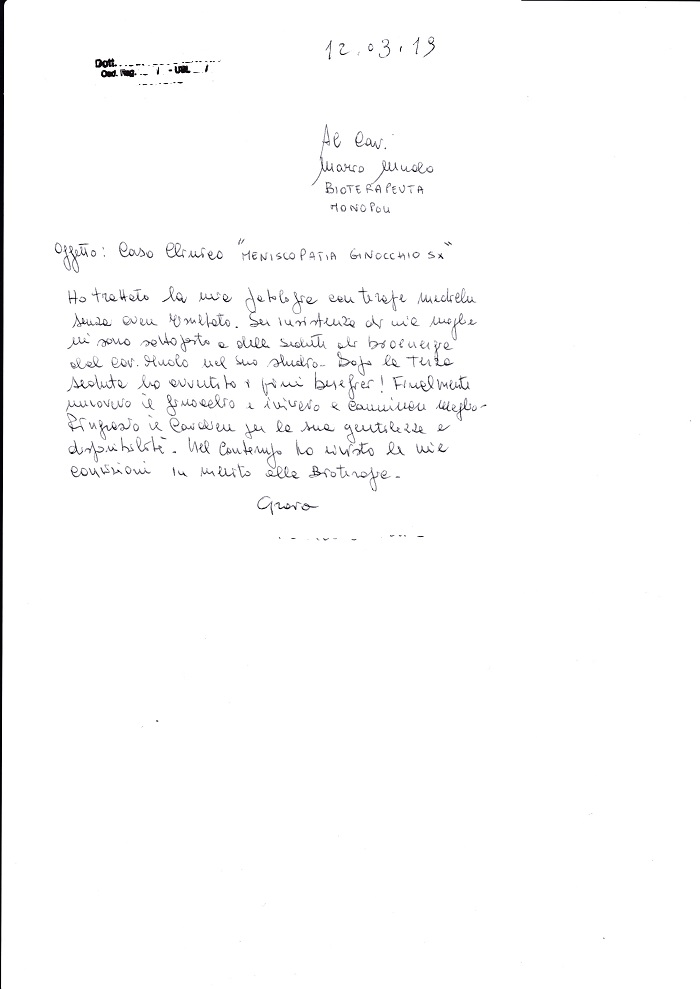 12.03.19
Dott.
Ord. Reg. / - USL /
Al Cav.
Marco Muolo
BIOTERAPEUTA
MONOPOLI
Oggetto: Caso Clinico "MENISCOPATIA GINOCCHIO SX"
Ho trattato la mia patologia con terapie mediche
senza aver risultato. Su insistenza di mia moglie
mi sono sottoposto a delle sedute di bioenergia
dal Cav. Muolo nel suo studio. Dopo la Terza
seduta ho avvertito i primi benefici! Finalmente
muovevo il ginocchio e iniziavo a camminare meglio.
Ringrazio il Cavaliere per la sua gentilezza e
disponibilità. Nel contempo ho rivisto le mie
convinzioni in merito alla Bioterapia.